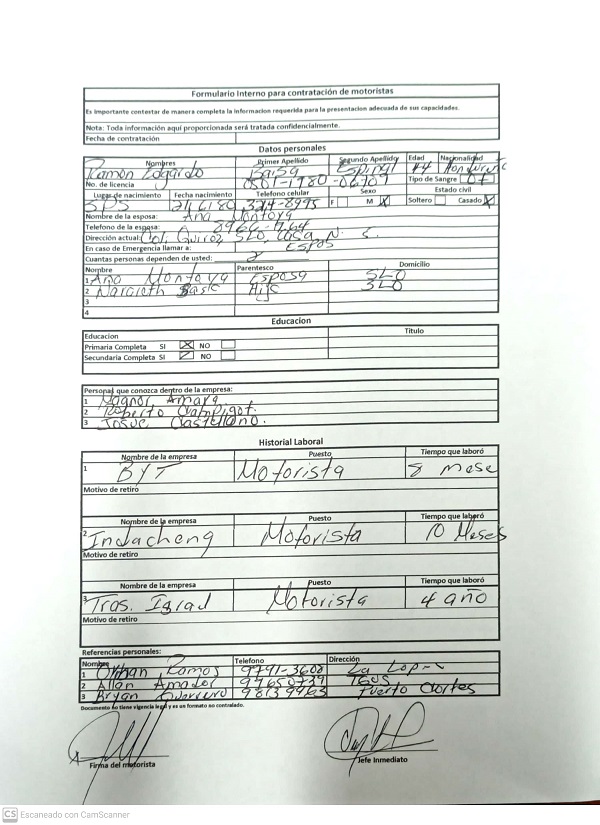 Formulario Interno para contratación de motoristas
Es importante contestar de manera completa la informacion requerida para la presentacion adecuada de sus capacidades.
Nota: Toda información aquí proporcionada será tratada confidencialmente.
Fecha de contratación
Datos personales
Nombres Primer Apellido Segundo Apellido Edad Nacionalidad
Ramon Edgardo Espinal 44
No. de licencia 0501-1980-06709 Tipo de Sangre O+
Lugar de nacimiento Fecha nacimiento Telefono celular Sexo Estado civil
SPS F M X Soltero Casado X
Nombre de la esposa: Ana Montoya
Telefono de la esposa:
Dirección actual: Col. Quiroz SLO, Casa N. 5.
En caso de Emergencia llamar a: Espos
Cuantas personas dependen de usted: 2
Nombre Parentesco Domicilio
1 Ana Montoya Esposa SLO
2 Hijo SLO
3
4
Educacion
Educacion Título
Primaria Completa SI X NO
Secundaria Completa SI NO
Personal que conozca dentro de la empresa:
1 Magnor Amaya
2 Roberto
3 Josue Castellano.
Historial Laboral
Nombre de la empresa Puesto Tiempo que laboró
1 BYT Motorista 8 mese
Motivo de retiro
Nombre de la empresa Puesto Tiempo que laboró
2 Indacheng Motorista 10 Meses
Motivo de retiro
Nombre de la empresa Puesto Tiempo que laboró
3 Tras. Motorista 4 año
Motivo de retiro
Referencias personales:
Nombre Telefono Dirección
1 Ramos 9791-3608 La
2 Allan Amador TGUS
3 Bryan Guerrero Puerto Cortes
Documento no tiene vigencia legal y es un formato no contralado.
Firma del motorista Jefe Inmediato
CS Escaneado con CamScanner